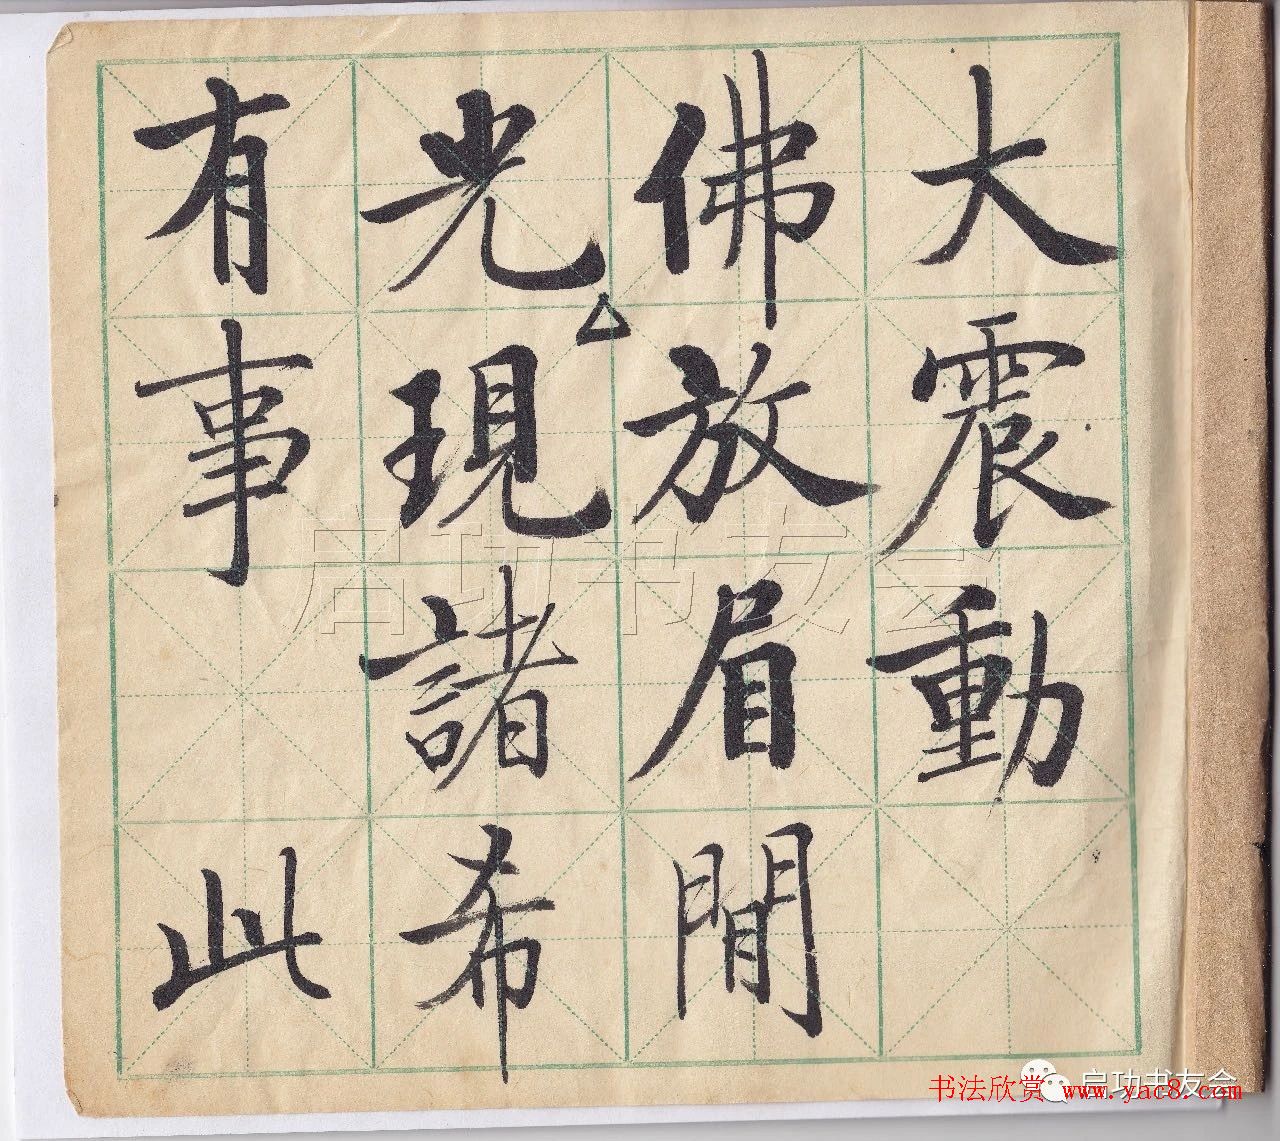 大震動
佛放眉間
光現諸希
有事 此
启功书友会
启功书友会
书法欣赏 www.yac8.com